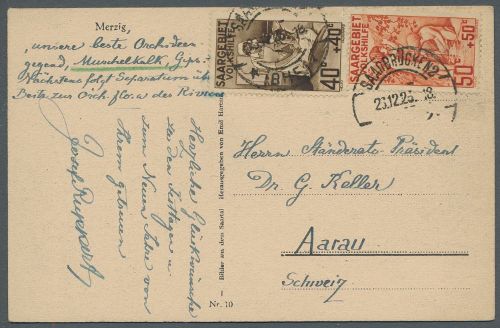 Merzig,
unsere beste Orchideen
gegend, Muschelkalk, Gips.
Nächstens folgt Separatum üb.
Beitr. zur Orch. flora der Riviera
Herzliche Glückwünsche
zu den Festtagen u.
zum Neuen Jahre von
Ihrem getreuen
Josef Ruppert
Bilder aus dem Saartal Herausgegeben von Emil Hartm
Nr. 10
SAARGEBIET
VOLKSHILFE
40c+40c
SAARGEBIET
VOLKSHILFE
50c+50c
SAARBRÜCKEN 2
23.12.26. 18
Herrn Ständerats-Präsident
Dr. G. Keller
Aarau
Schweiz